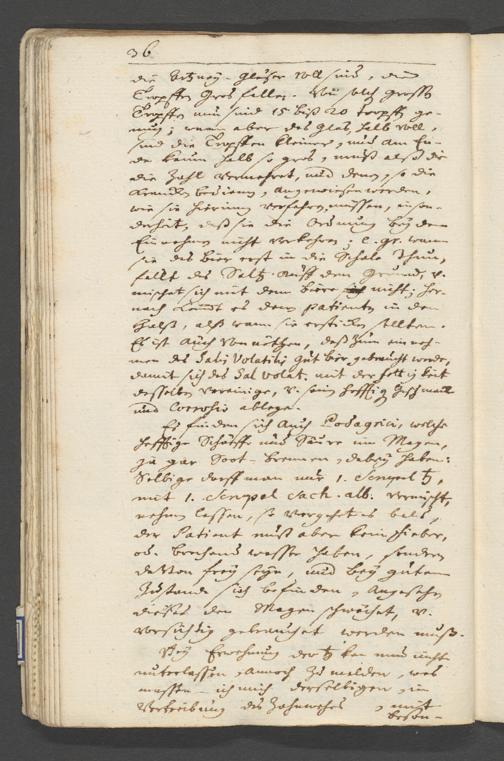 36
die Artzney-Gläser voll sind, die
Tropffen gros fallen. Von solch grossen
Tropffen nun sind 15 biß 20 Tropffen ge-
nung; wann aber das Glas halb voll,
sind die Tropffen kleiner, und am En-
de kaum halb so gros, muß also die
die Zahl vermehret, und denen, so die
Krancken bedienen, angewiesen werden,
wie sie hierinn verfahren müssen,
daß sie die Ordnung bey dem
Einnehmen nicht verkehren, e. gr. wann
sie das bier erst in die Schale thun,
fällt das Saltz auff den Grund, v.
mischet sich mit dem biere nicht; her-
nach kommt es dem patienten in den
Halß, alß wann sie ersticken sollten.
Es ist auch von nöthen, daß zum einneh-
men des Salis Volatilis gut bier gebraucht werde,
damit sich das Sal volat. mit der fettigkeit
desselben vereinige, v. sein hefftig
und Corrosiv ablege.
Es finden sich auch Podagrici, welche
hefftige Schärffe und Säure im Magen,
ja gar Soot-brennen dabey haben:
Selbige darff man nur 1. Scrupel ♄,
mit 1. Scrupel Sach. alb. vermischt,
nehmen lassen, so vergehet es bald,
der Patient muß aber kein fieber,
od. haben, sondern
davon frey seyn, und bey gutem
Zustande sich befinden, Angesehen
dieses den Magen schwächet, v.
vorsichtig gebrauchet werden muß.
Bey Erwehnung der ♄ kan nun nicht
unterlassen, annoch zu melden, was
massen ich mich derselbigen, in
Vertreibung des Zahnwehes, mit
beson-